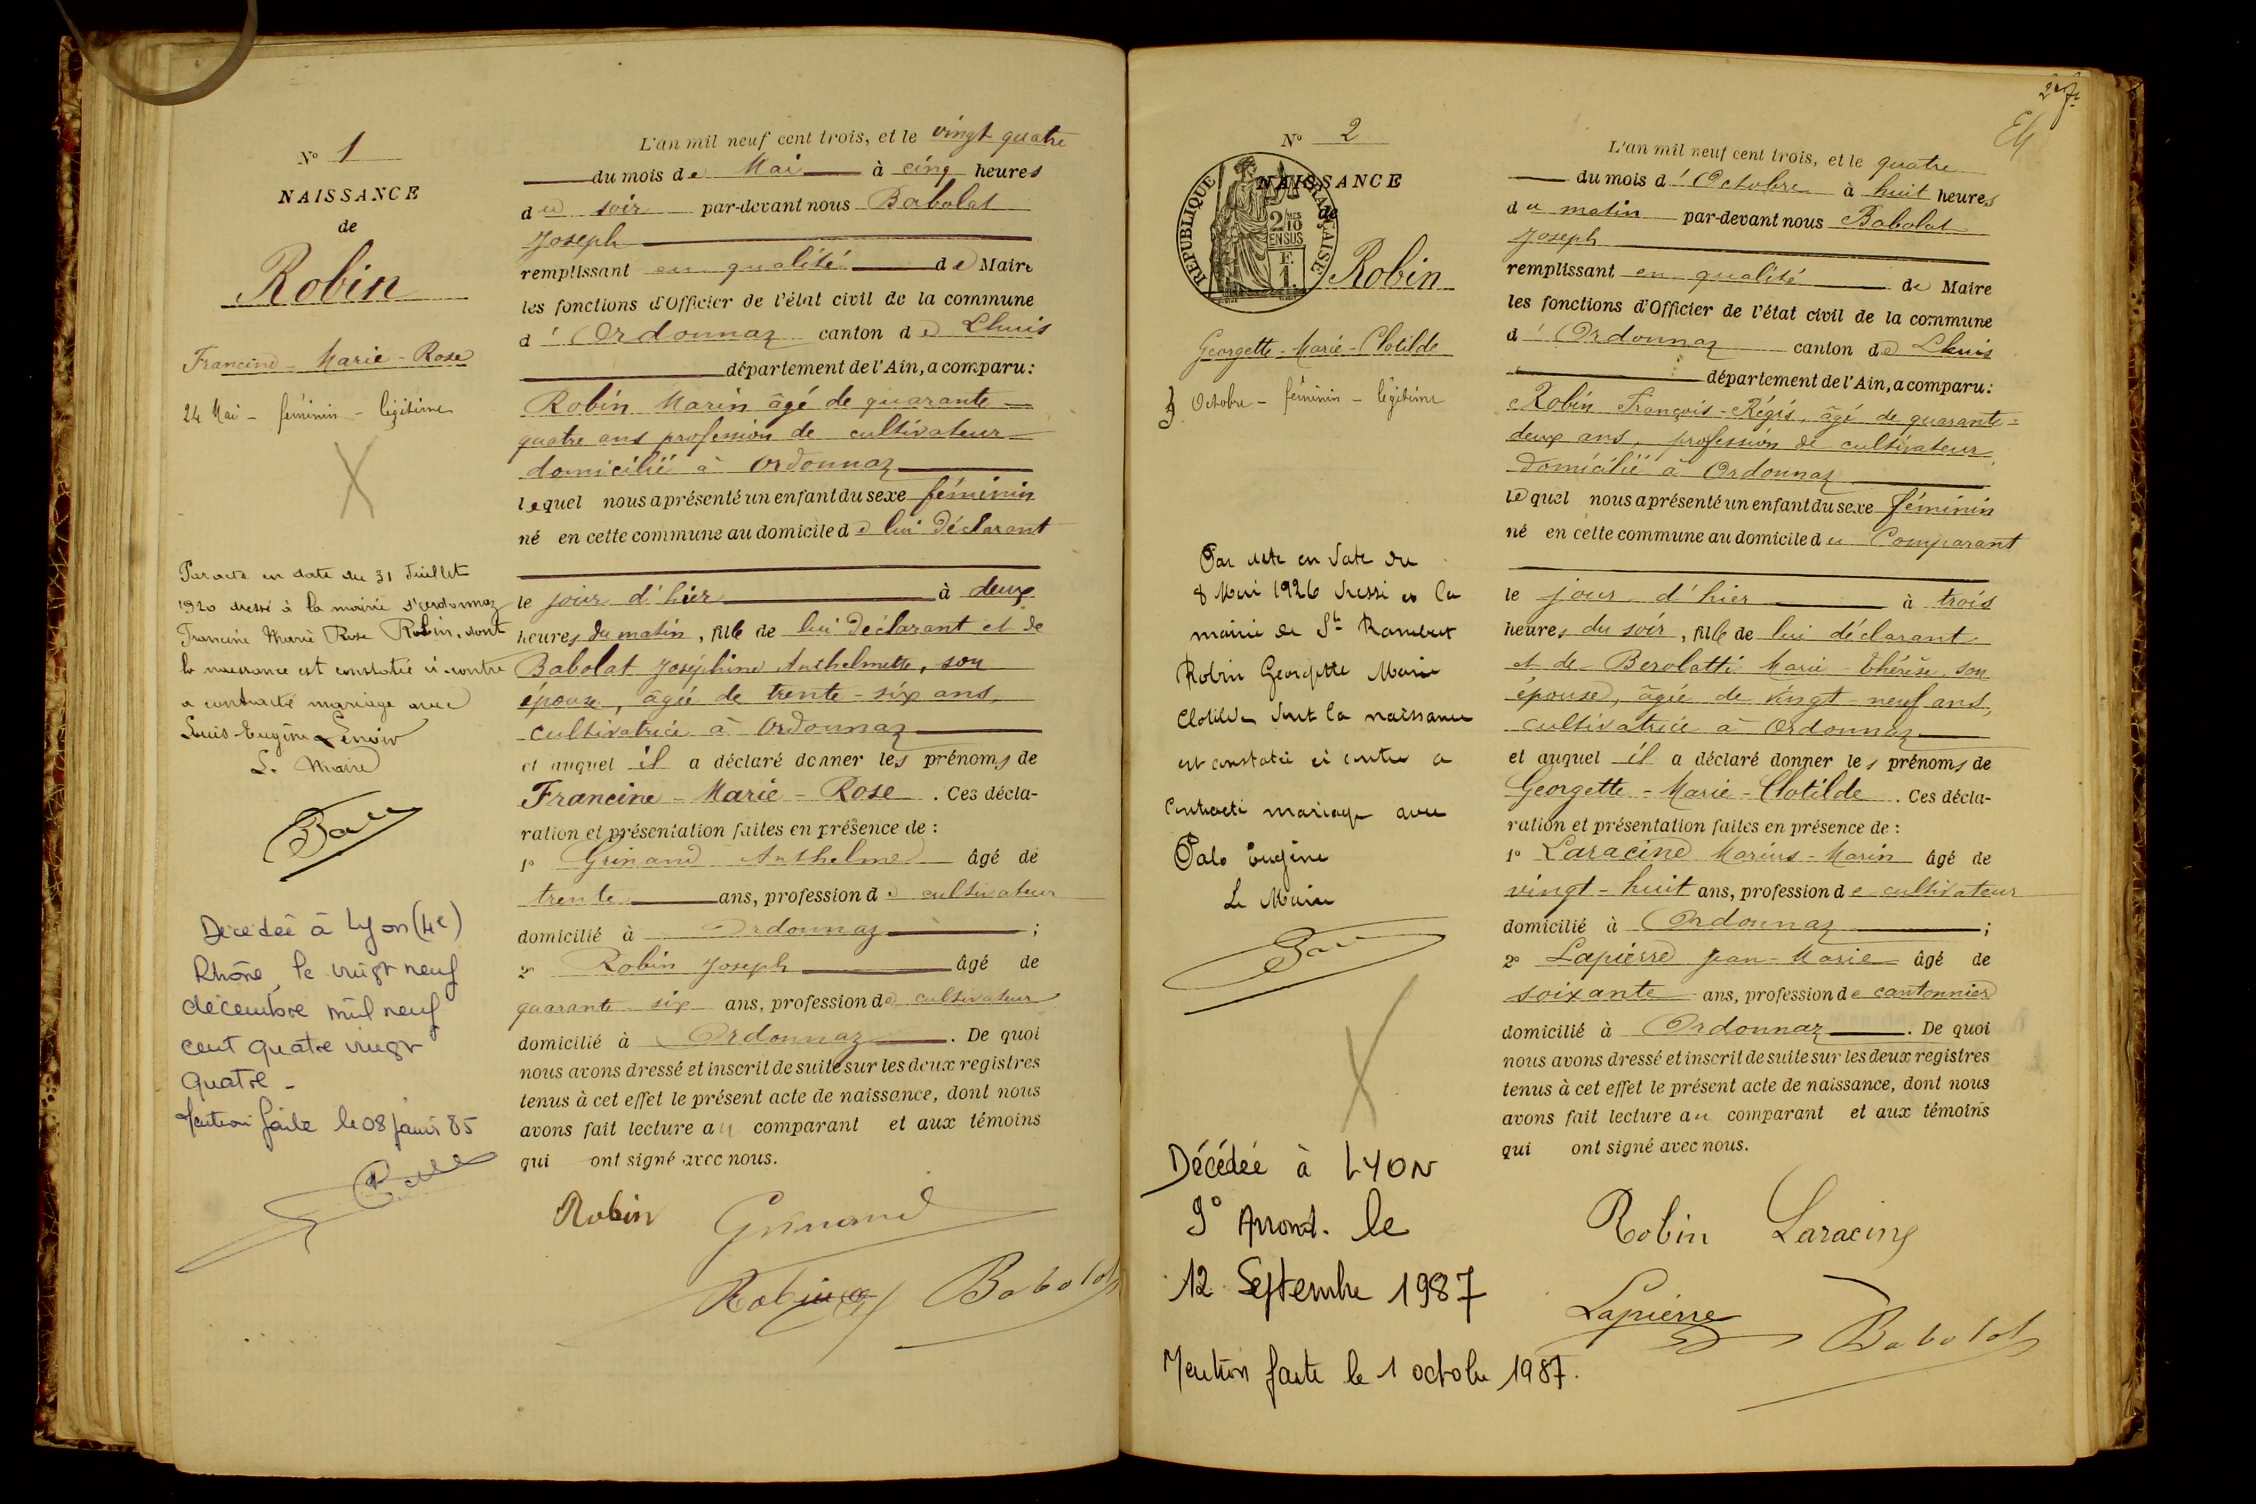 N° 1
NAISSANCE
de
Robin
Francine - Marie - Rose
24 Mai - féminin - légitime
Par acte en date du 31 Juillet
1920 dressé à la mairie d'Ordonnaz
Francine Marie Rose Robin, dont
la naissance est constatée ci-contre
a contracté mariage avec
Louis Eugène Lenoir
Le Maire
Décédée à Lyon (4e)
Rhône, le vingt neuf
décembre mil neuf
cent quatre vingt
quatre -
Mention faite le 08 janvi 85
L'an mil neuf cent trois, et le vingt quatre
du mois de Mai à cinq heures
du soir par-devant nous Babolat
Joseph
remplissant en qualité de Maire
les fonctions d'Officier de l'état civil de la commune
d' Ordonnaz canton de Lhuis
département de l'Ain, a comparu :
Robin Marin âgé de quarante
quatre ans profession de cultivateur
domicilié à Ordonnaz
lequel nous a présenté un enfant du sexe féminin
né en cette commune au domicile de lui déclarant
le jour d'hier à deux
heures du matin, fille de lui déclarant et de
Babolat Joséphine Anthelmette, son
épouse, âgée de trente-six ans,
cultivatrice à Ordonnaz
et auquel il a déclaré donner les prénoms de
Francine - Marie - Rose . Ces décla-
ration et présentation faites en présence de :
1° Grinand Anthelme âgé de
trente ans, profession de cultivateur
domicilié à Ordonnaz ;
2° Robin Joseph âgé de
quarante six ans, profession de cultivateur
domicilié à Ordonnaz . De quoi
nous avons dressé et inscrit de suite sur les deux registres
tenus à cet effet le présent acte de naissance, dont nous
avons fait lecture au comparant et aux témoins
qui ont signé avec nous.
Robin Grinand
Robin Babolat
N° 2
NAISSANCE
de
RÉPUBLIQUE FRANÇAISE
2/10
EN SUS
F.
1.
Robin
Georgette - Marie - Clotilde
3 Octobre - féminin - légitime
Par acte en date du
8 Mai 1926 dressé en la
mairie de St Rambert
Robin Georgette Marie
Clotilde dont la naissance
est constatée ci contre a
contracté mariage avec
Palo Eugène
Le Maire
Décédée à LYON
9° Arrond. le
12 Septembre 1987
Mention faite le 1 octobre 1987.
L'an mil neuf cent trois, et le quatre
du mois d'Octobre à huit heures
du matin par-devant nous Babolat
Joseph
remplissant en qualité de Maire
les fonctions d'Officier de l'état civil de la commune
d' Ordonnaz canton de Lhuis
département de l'Ain, a comparu :
Robin François-Régis, âgé de quarante-
deux ans, profession de cultivateur
domicilié à Ordonnaz
lequel nous a présenté un enfant du sexe féminin
né en cette commune au domicile du Comparant
le jour d'hier à trois
heures du soir, fille de lui déclarant
et de Berolatti Marie-Thérèse, son
épouse, âgée de vingt-neuf ans,
cultivatrice à Ordonnaz
et auquel il a déclaré donner les prénoms de
Georgette - Marie - Clotilde . Ces décla-
ration et présentation faites en présence de :
1° Laracine Marius-Marin âgé de
vingt-huit ans, profession de cultivateur
domicilié à Ordonnaz ;
2° Lapierre Jean-Marie âgé de
soixante ans, profession de cantonnier
domicilié à Ordonnaz . De quoi
nous avons dressé et inscrit de suite sur les deux registres
tenus à cet effet le présent acte de naissance, dont nous
avons fait lecture au comparant et aux témoins
qui ont signé avec nous.
Robin Laracine
Lapierre Babolat